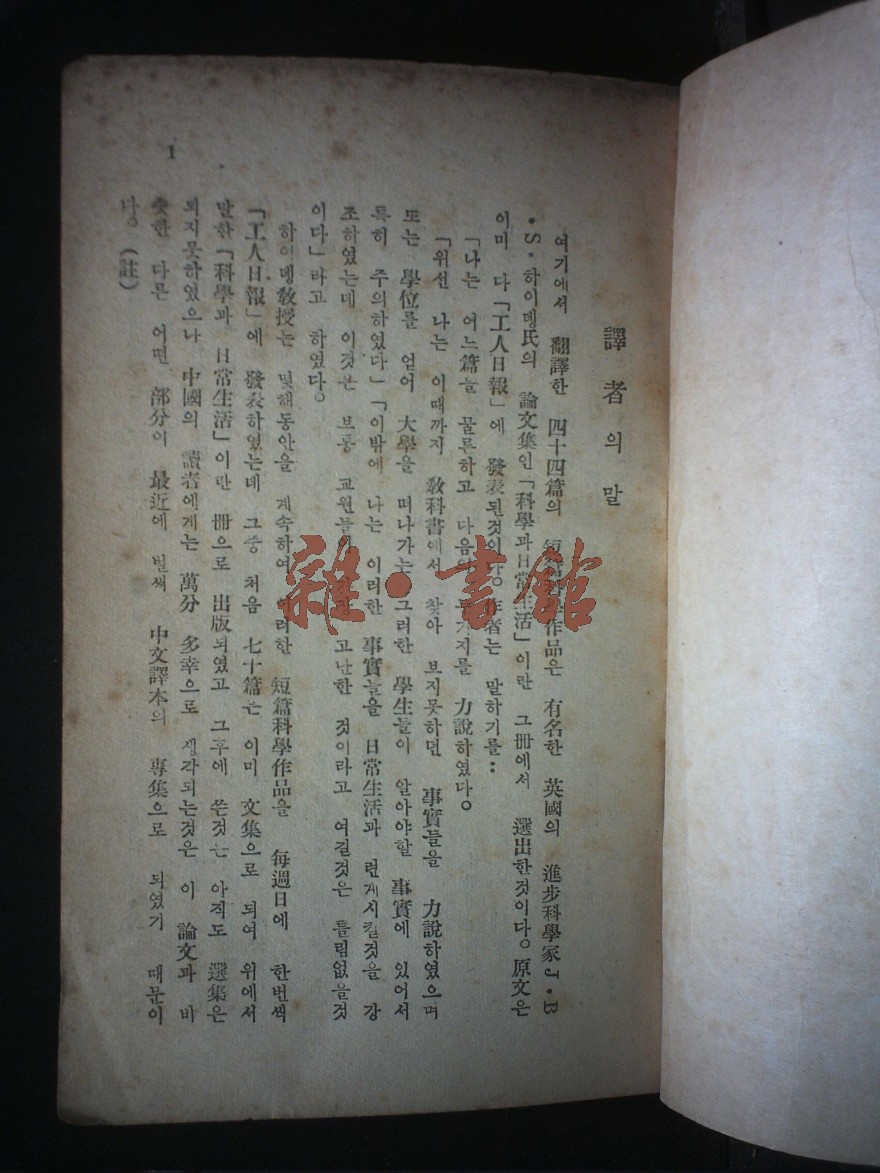 譯者의 말
여기에서 翻譯한 四十四篇의 短篇科學作品은 有名한 英國의 進步科學家 J·B
·S·하이뗑氏의 論文集인「科學과日常生活」이란 그冊에서 選出한것이다。原文은
이미 다「工人日報」에 發表된것이다。作者는 말하기를:
「나는 어느篇을 물론하고 다음의 두가지를 力說하였다。
「위선 나는 이때까지 敎科書에서 찾아 보지못하던 事實들을 力說하였으며
또는 學位를 얻어 大學을 떠나가는 그러한 學生들이 알아야할 事實에 있어서
특히 주의하였다」「이밖에 나는 이러한 事實들을 日常生活과 련게시킬것을 강
조하였는데 이것은 보통 교원들이 가장 고난한 것이라고 여길것은 틀림없을것
이다」라고 하였다。
하이뗑敎授는 몇해동안을 계속하여 이러한 短篇科學作品을 每週日에 한번씩
「工人日報」에 發表하였는데 그중 처음 七十篇은 이미 文集으로 되여 위에서
말한「科學과 日常生活」이란 冊으로 出版되였고 그후에 쓴것은 아직도 選集은
되지못하였으나 中國의 讀者에게는 萬分 多幸으로 생각되는것은 이 論文과 바
웃한 다른 어떤 部分이 最近에 벌써 中文譯本의 專集으로 되였기 때문이
다。(註)
1
雜·書館